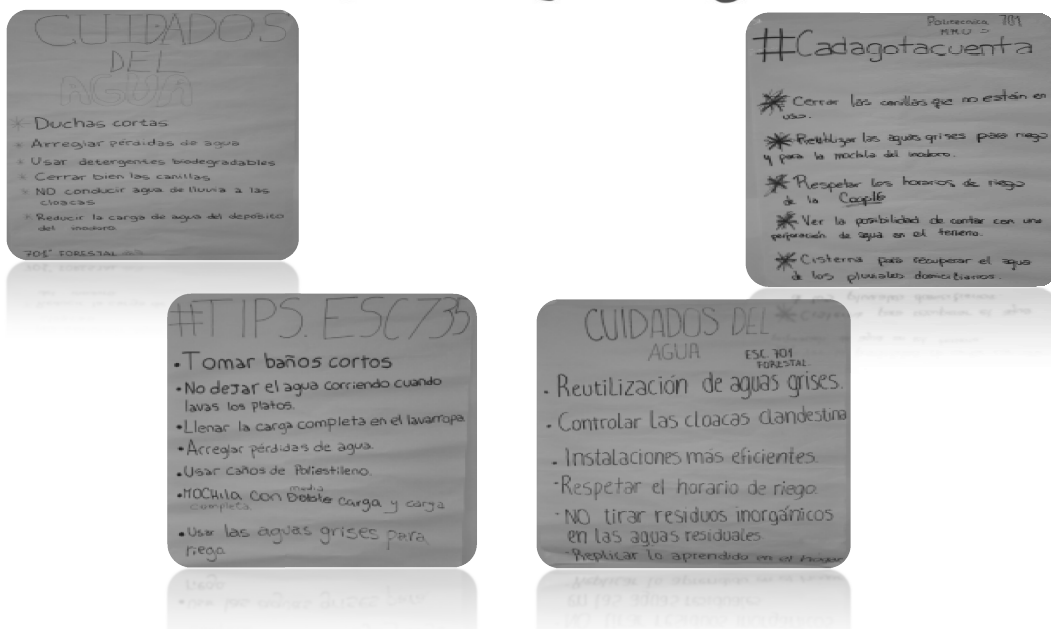 CUIDADOS
DEL
AGUA
* Duchas cortas
* Arreglar pérdidas de agua
* Usar detergentes biodegradables
* Cerrar bien las canillas
* NO conducir agua de lluvia a las
cloacas
* Reducir la carga de agua del depósito
del inodoro.
701° FORESTAL
Politecnica 701
MMO
#Cadagotacuenta
* Cerrar las canillas que no están en
uso.
* Reutilizar las aguas grises para riego
y para la mochila del inodoro.
* Respetar los horarios de riego
de la Coople
* Ver la posibilidad de contar con una
perforación de agua en el terreno.
* Cisterna para recuperar el agua
de los pluviales domiciliarios.
#TIPS.ESC735
• Tomar baños cortos
• No dejar el agua corriendo cuando
lavas los platos.
• Llenar la carga completa en el lavarropa
• Arreglar pérdidas de agua.
• Usar caños de Poliestileno.
• MOCHILA CON Doble media carga y carga
completa.
• Usar las aguas grises para
riego
CUIDADOS DEL
AGUA
ESC. 701
FORESTAL
• Reutilización de aguas grises.
• Controlar las cloacas clandestina
• Instalaciones mas eficientes.
- Respetar el horario de riego.
- NO tirar residuos inorgánicos
en las aguas residuales
- Replicar lo aprendido en el hogar